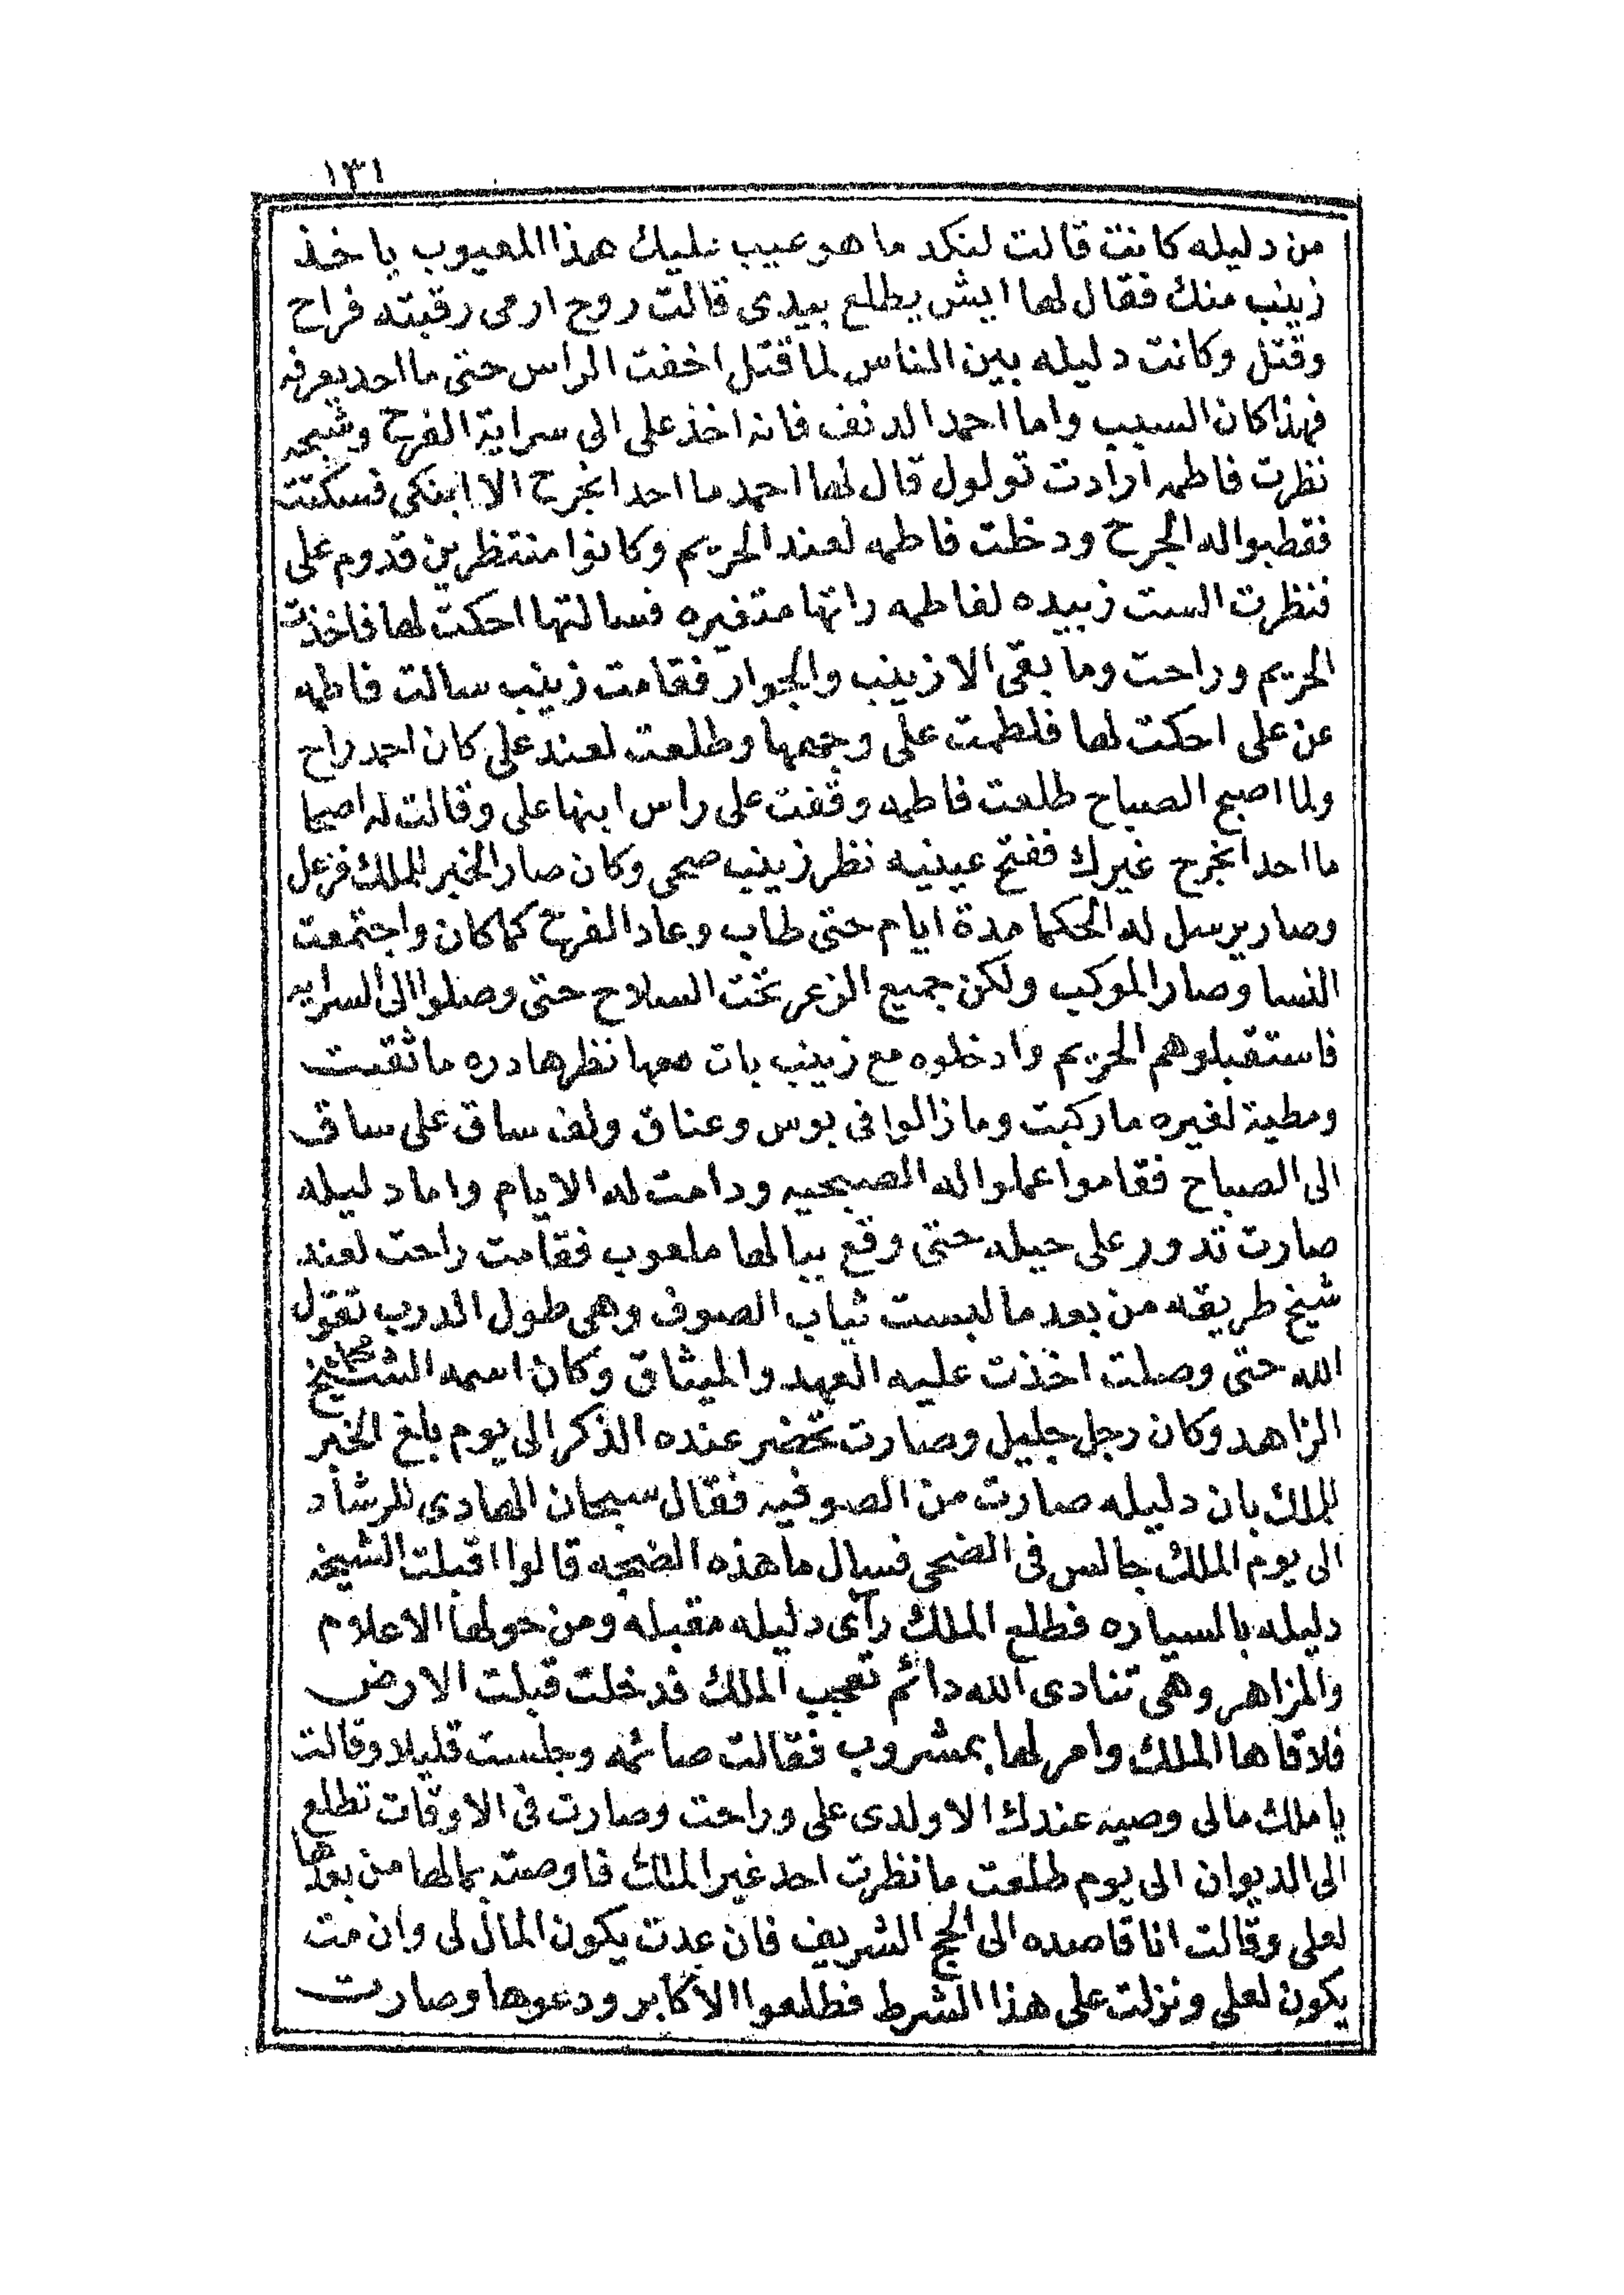 ١٣١
من دليله كانت قالت لنكد ما هو عيب عليك هذا المعيوب ياخذ
زينب منك فقال لها ايش يطلع بيدى قالت روح ارمى رقبته فراح
وقتل وكانت دليله بين الناس لما قتل اخفت الراس حتى ما احد يعرفه
فهذا كان السبب واما احمد الدنف فانه اخذ على الى سراية الفرح وشبحه
نظرت فاطمه ارادت تولول قال لها احمد ما احد انجرح الا ابنكى فسكتت
فقطبوا له الجرح ودخلت فاطمه لعند الحريم وكانوا منتظرين قدوم على
فنظرت الست زبيده لفاطمه راتها متغيره فسالتها احكت لها فاخذت
الحريم وراحت وما بقى الا زينب والجوار فقامت زينب سالت فاطمه
عن على احكت لها فلطمت على وجهها وطلعت لعند على كان احمد راح
ولما اصبح الصباح طلعت فاطمه وقفت على راس ابنها على وقالت له اصحا
ما احد انجرح غيرك ففتح عينيه نظر زينب صحى وكان صار الخبر للملك فزعل
وصار يرسل له الحكما مدة ايام حتى طاب وعاد الفرح كما كان واجتمعت
النسا وصار الموكب ولكن جميع الزعر تحت السلاح حتى وصلوا الى السرايه
فاستقبلوهم الحريم وادخلوه مع زينب بات معها نظرها دره ما ثقبت
ومطية لغيره ما ركبت وما زالوا فى بوس وعناق ولف ساق على ساق
الى الصباح فقاموا عملوا له الصبحيه ودامت له الايام واما دليله
صارت تدور على حيله حتى وقع ببالها ملعوب فقامت راحت لعند
شيخ طريقه من بعد ما لبست ثياب الصوف وهى طول الدرب تقول
الله حتى وصلت اخذت عليه العهد والميثاق وكان اسمه الشيخ محمد
الزاهد وكان رجل جليل وصارت تحضر عنده الذكر الى يوم بلغ الخبر
للملك بان دليله صارت من الصوفيه فقال سبحان الهادى للرشاد
الى يوم الملك جالس فى الضحى فسال ما هذه الضجه قالوا اقبلت الشيخه
دليله بالسياره فطلع الملك رآى دليله مقبله ومن حولها الاعلام
والمزاهر وهى تنادى الله دائم تعجب الملك فدخلت قبلت الارض
فلاقاها الملك وامر لها بمشروب فقالت صائمه وجلست قليلا وقالت
يا ملك مالى وصيه عندك الا ولدى على وراحت وصارت فى الاوقات تطلع
الى الديوان الى يوم طلعت ما نظرت احد غير الملك فاوصته بمالها من بعدها
لعلى وقالت انا قاصده الى الحج الشريف فان عدت يكون المال لى وان مت
يكون لعلى ونزلت على هذا الشرط فطلعوا الاكابر ودعوها وصارت